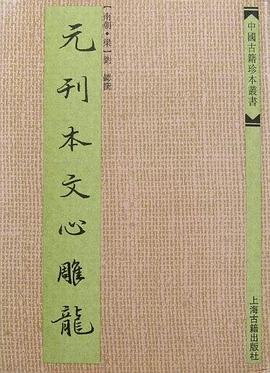 中國古籍珍本叢書
[南朝·梁]劉勰撰
元刊本文心雕龍
上海古籍出版社